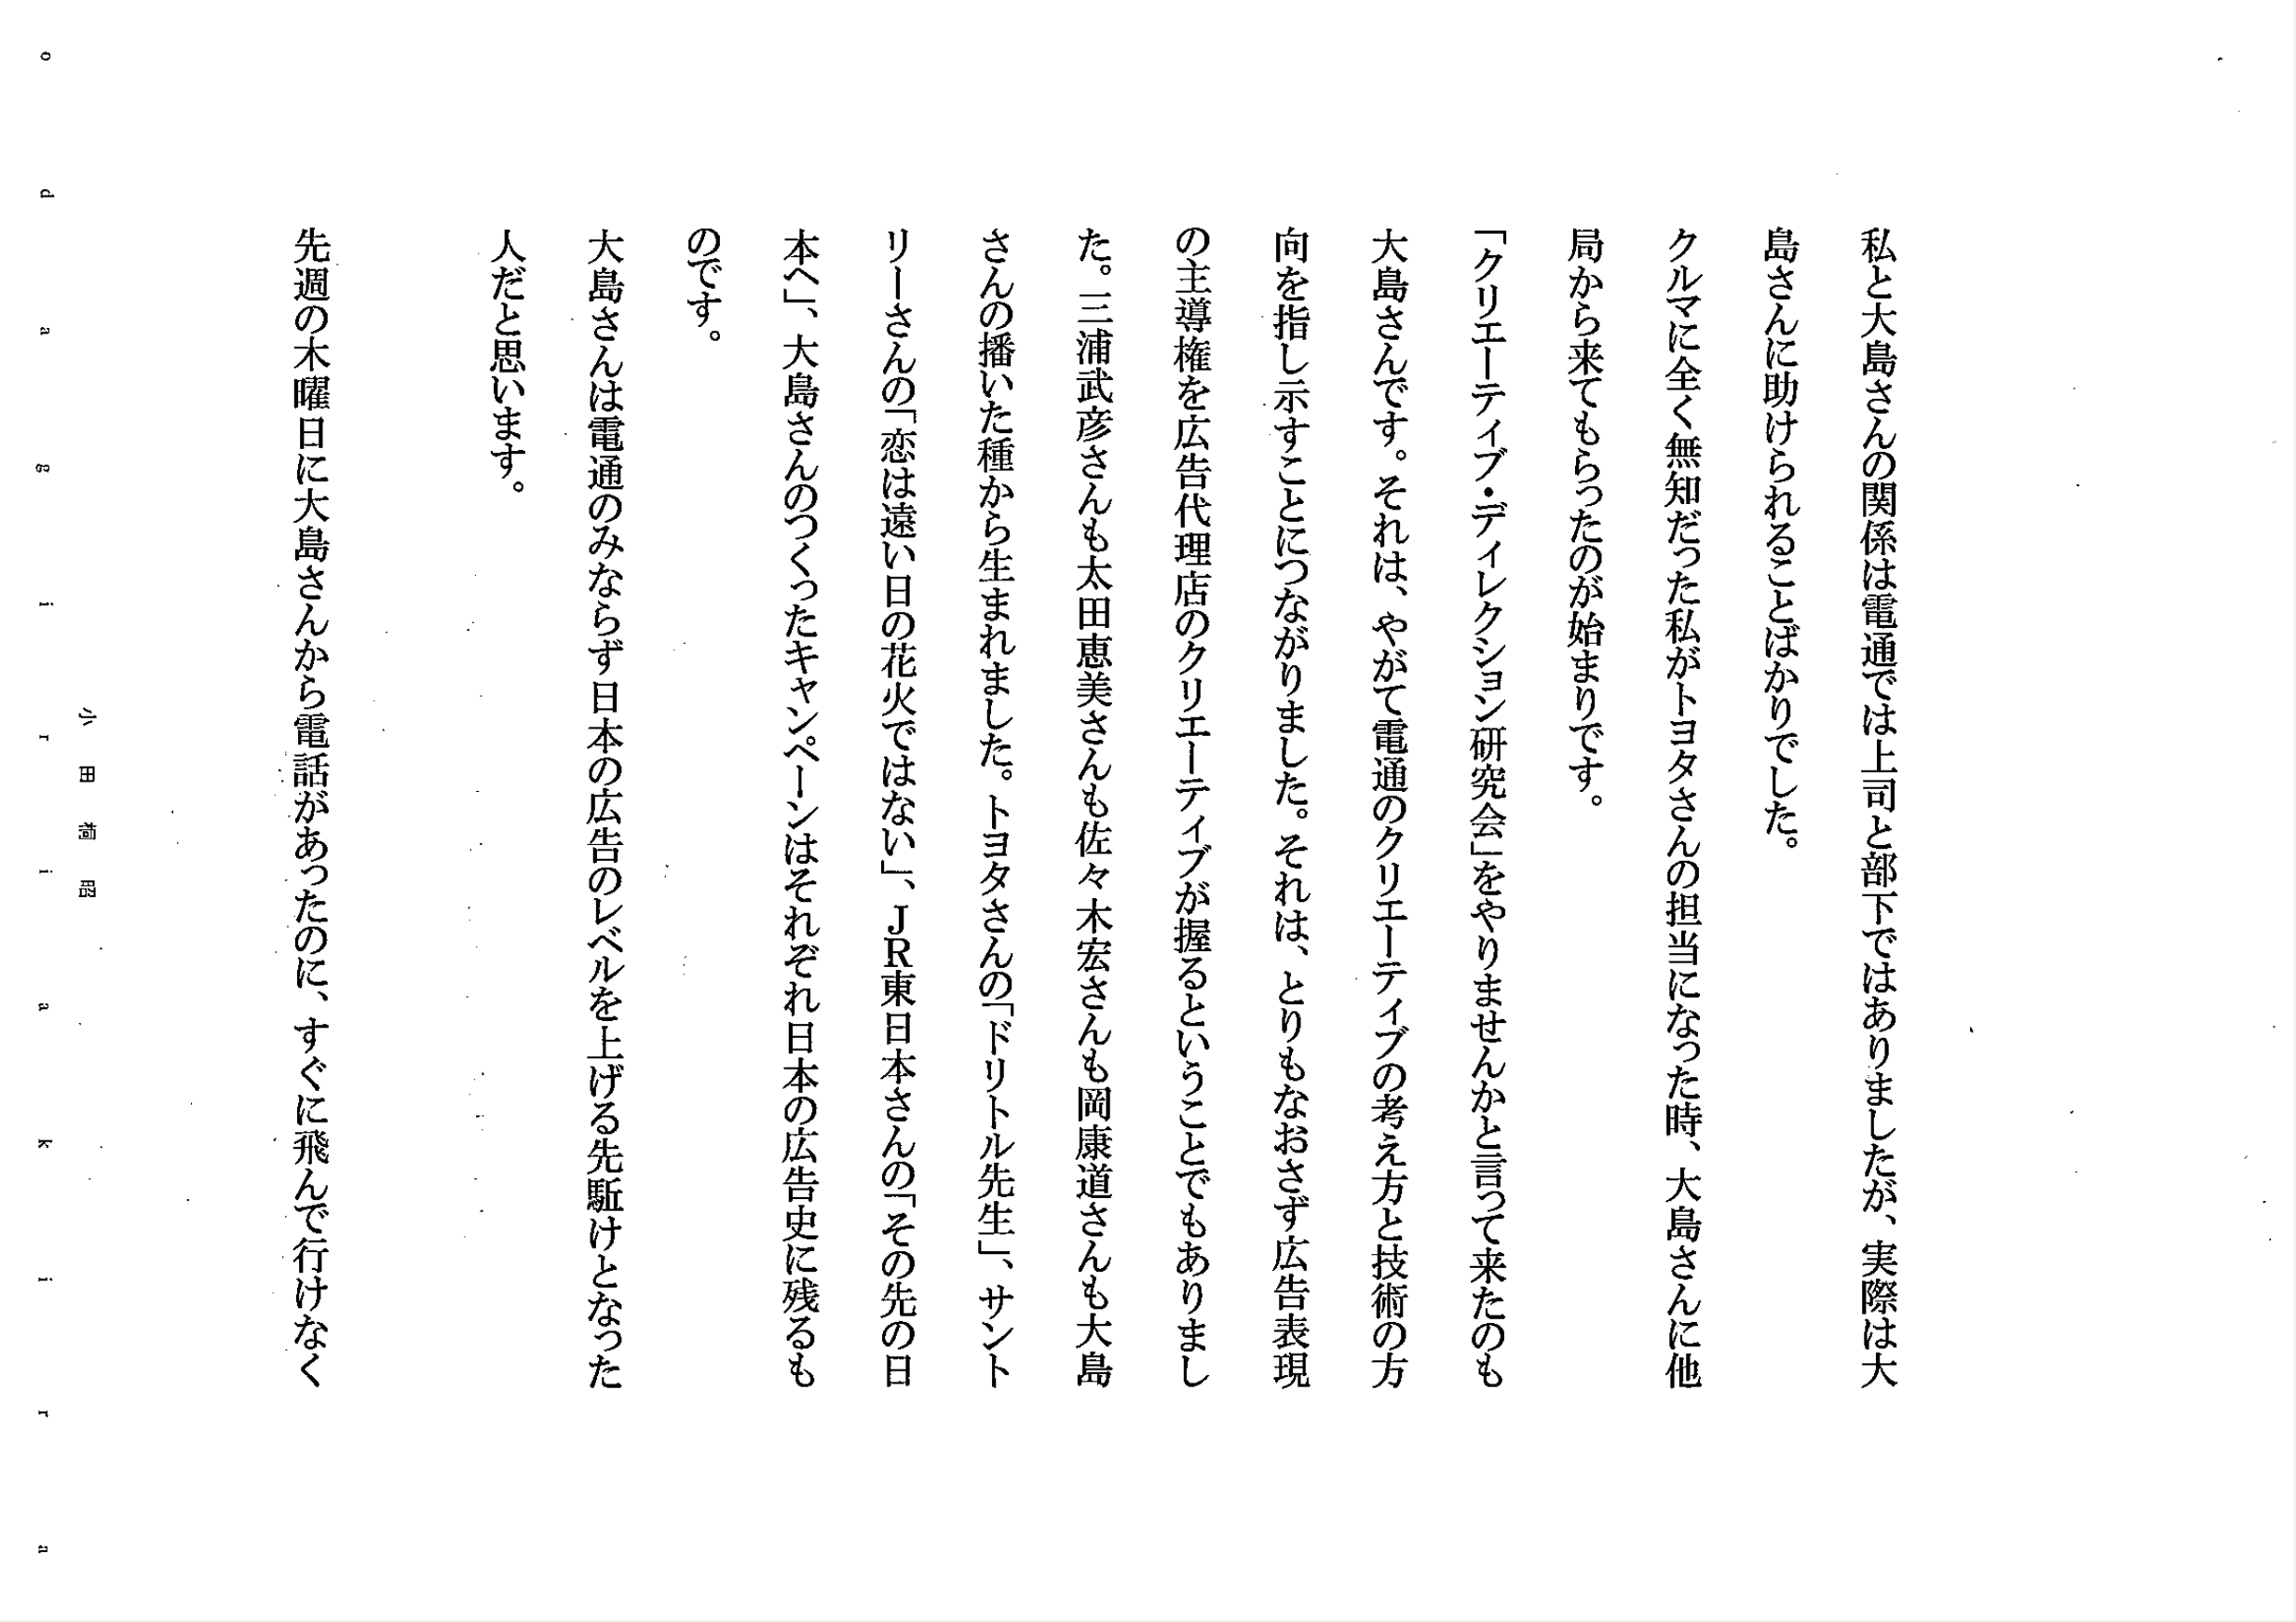 私と大島さんの関係は電通では上司と部下ではありましたが、実際は大
島さんに助けられることばかりでした。
クルマに全く無知だった私がトヨタさんの担当になった時、大島さんに他
局から来てもらったのが始まりです。
「クリエーティブ・ディレクション研究会」をやりませんかと言って来たのも
大島さんです。それは、やがて電通のクリエーティブの考え方と技術の方
向を指し示すことにつながりました。それは、とりもなおさず広告表現
の主導権を広告代理店のクリエーティブが握るということでもありまし
た。三浦武彦さんも太田恵美さんも佐々木宏さんも岡康道さんも大島
さんの播いた種から生まれました。トヨタさんの「ドリトル先生」、サント
リーさんの「恋は遠い日の花火ではない」、JR東日本さんの「その先の日
本へ」、大島さんのつくったキャンペーンはそれぞれ日本の広告史に残るも
のです。
大島さんは電通のみならず日本の広告のレベルを上げる先駈けとなった
人だと思います。
先週の木曜日に大島さんから電話があったのに、すぐに飛んで行けなく
小田桐昭
odagiri akira